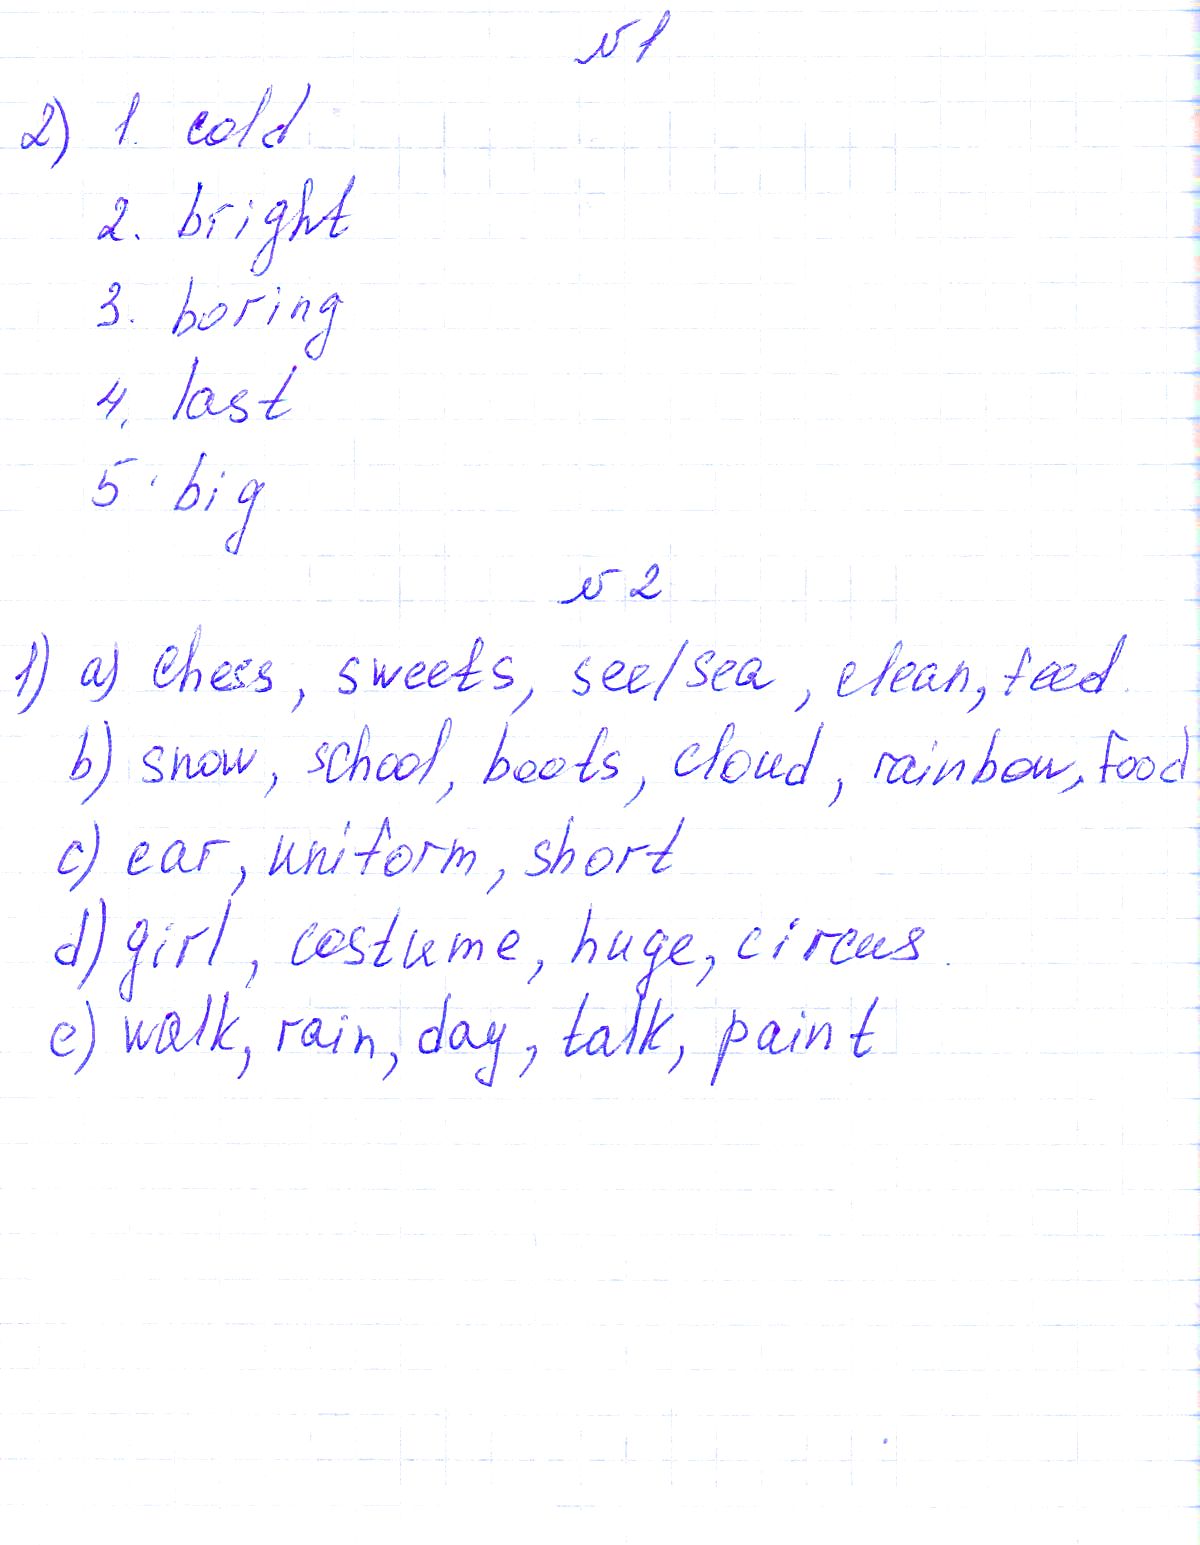 №1
2) 1. cold
2. bright
3. boring
4. last
5. big
№2
1) a) chess, sweets, see/sea, clean, feed
b) snow, school, boots, cloud, rainbow, food
c) ear, uniform, short
d) girl, costume, huge, circus
e) walk, rain, day, talk, paint